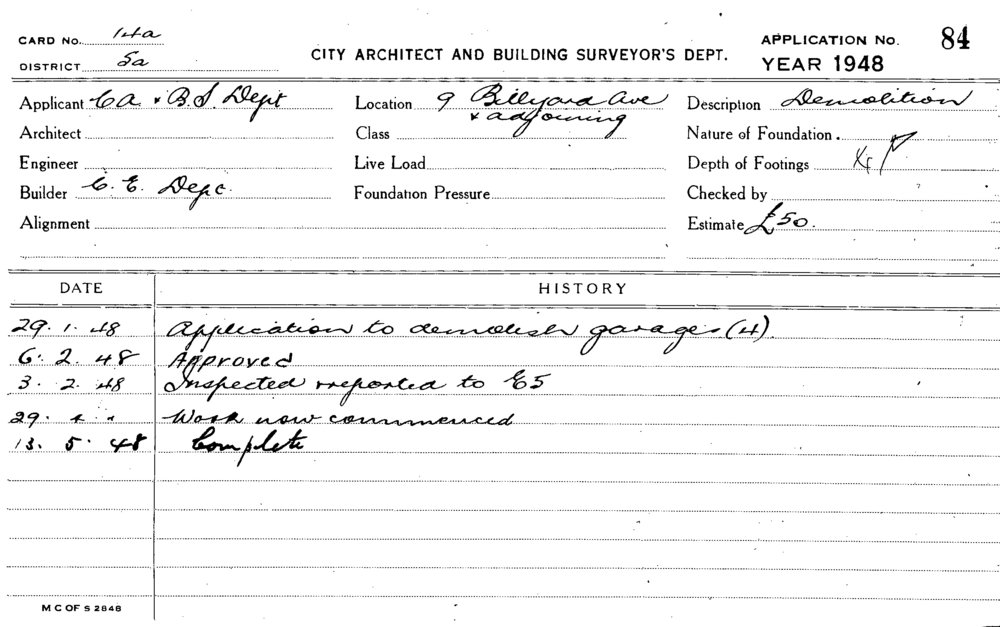 CARD No. 14a
DISTRICT 5a
CITY ARCHITECT AND BUILDING SURVEYOR'S DEPT.
APPLICATION No. 84
YEAR 1948
Applicant CA & B.S Dept
Location 9 Billyard Ave
& adjoining
Description Demolition
Architect
Class
Nature of Foundation
Engineer
Live Load
Depth of Footings
Builder C. E. Dept.
Foundation Pressure
Checked by
Alignment
Estimate £50.
DATE HISTORY
29. 1. 48 Application to demolish garages (4)
6. 2. 48 Approved
3. 2. 48 Inspected & reported to
29. Work now commenced
13. 5. 48 Complete
M C OF S 2848